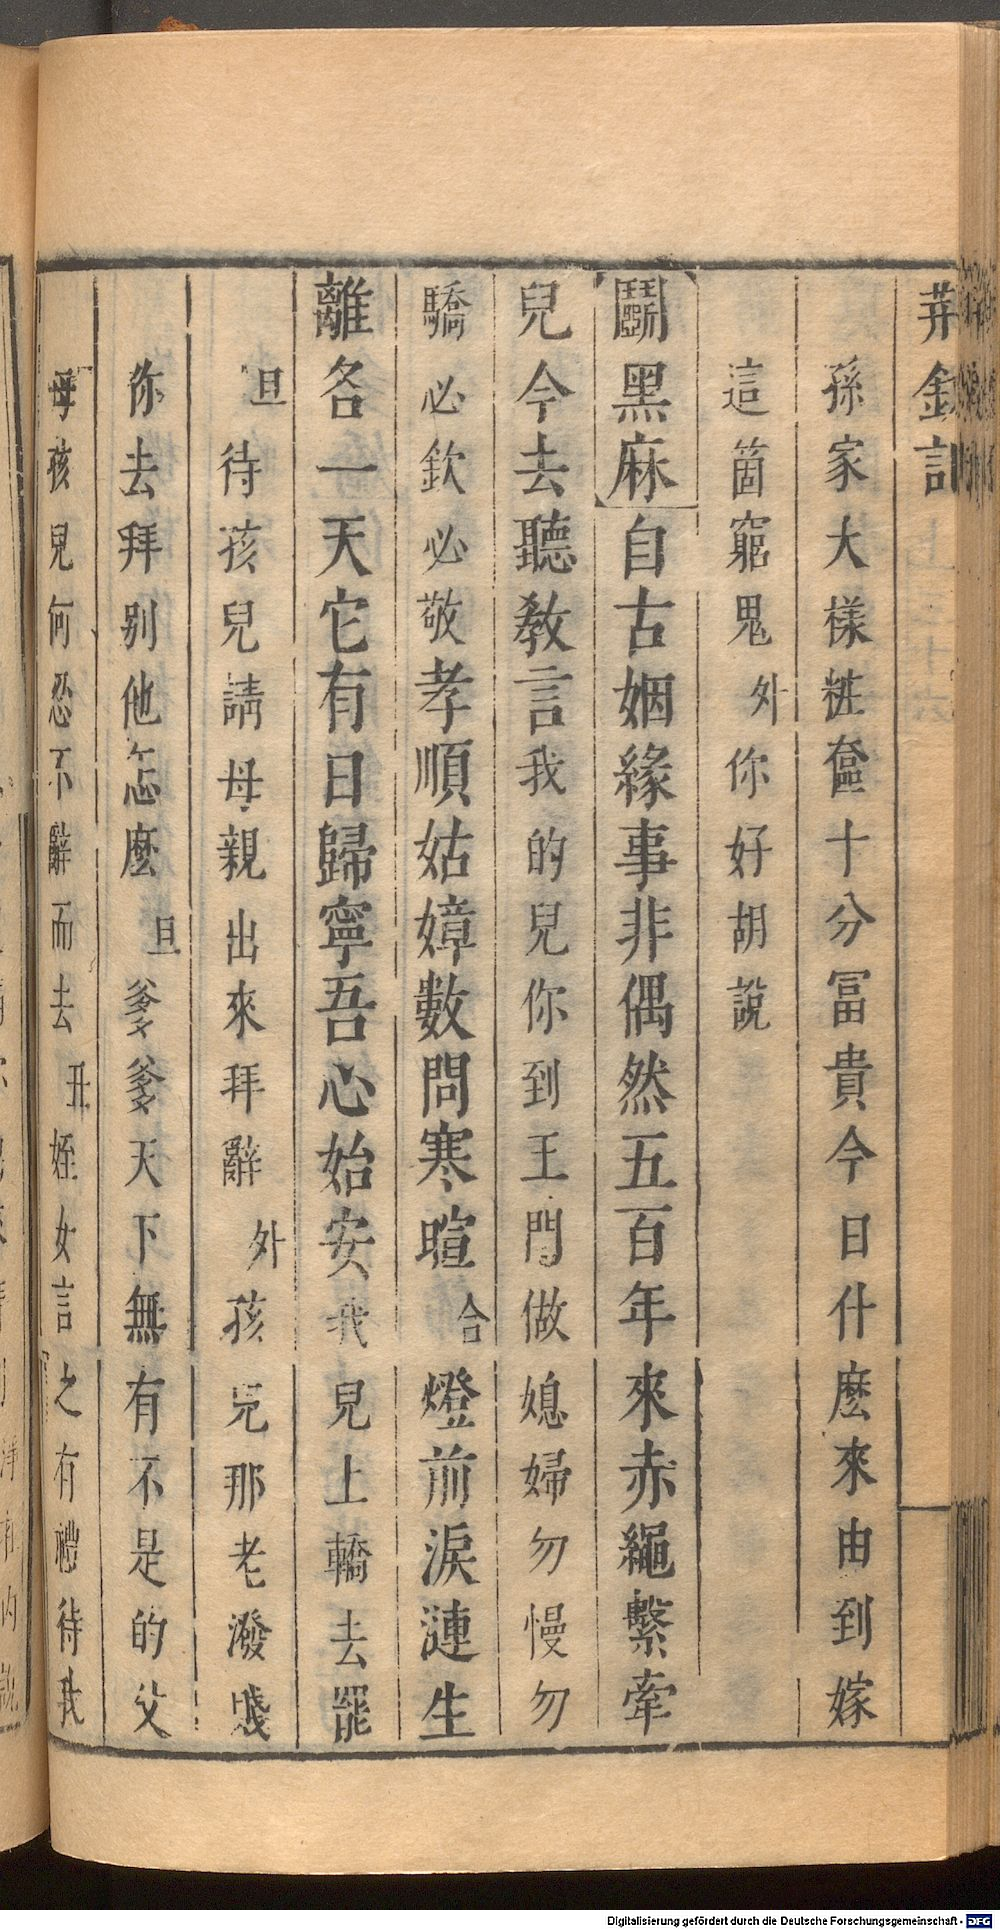 荆釵記
孫家大樣粧奩十分冨貴今日什麽來由到嫁
這箇窮鬼外你好胡說
鬭黑麻自古姻緣事非偶然五百年來赤繩繫牽
兒今去聽教言我的兒你到王門做媳婦勿慢勿
驕必欽必敬孝順姑嫜數問寒暄合燈前淚漣生
離各一天它有日歸寧吾心始安我兒上轎去罷
旦待孩兒請母親出來拜辭外孩兒那老潑賤
你去拜别他怎麽旦爹爹天下無有不是的父
母孩兒何忍不辭而去丑姪女言之有禮待我
Digitalisierung gefördert durch die Deutsche Forschungsgemeinschaft - DFG